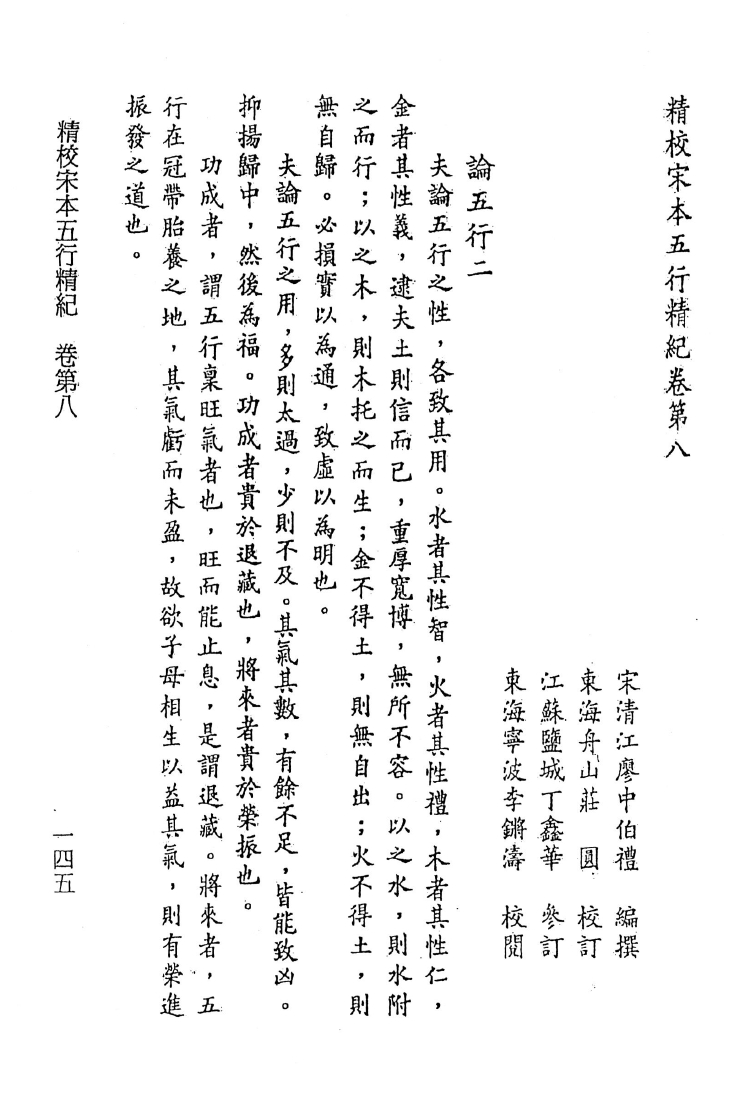 精校宋本五行精紀卷第八
宋清江廖中伯禮　編撰
東海舟山莊　圓　校訂
江蘇鹽城丁鑫華　參訂
東海寧波李鏘濤　校閱
論五行二
夫論五行之性，各致其用。水者其性智，火者其性禮，木者其性仁，
金者其性義，逮夫土則信而已，重厚寬博，無所不容。以之水，則水附
之而行；以之木，則木托之而生；金不得土，則無自出；火不得土，則
無自歸。必損實以為通，致虛以為明也。
夫論五行之用，多則太過，少則不及。其氣其數，有餘不足，皆能致凶。
抑揚歸中，然後為福。功成者貴於退藏也，將來者貴於榮振也。
功成者，謂五行稟旺氣者也，旺而能止息，是謂退藏。將來者，五
行在冠帶胎養之地，其氣虧而未盈，故欲子母相生以益其氣，則有榮進
振發之道也。
精校宋本五行精紀　卷第八
一四五